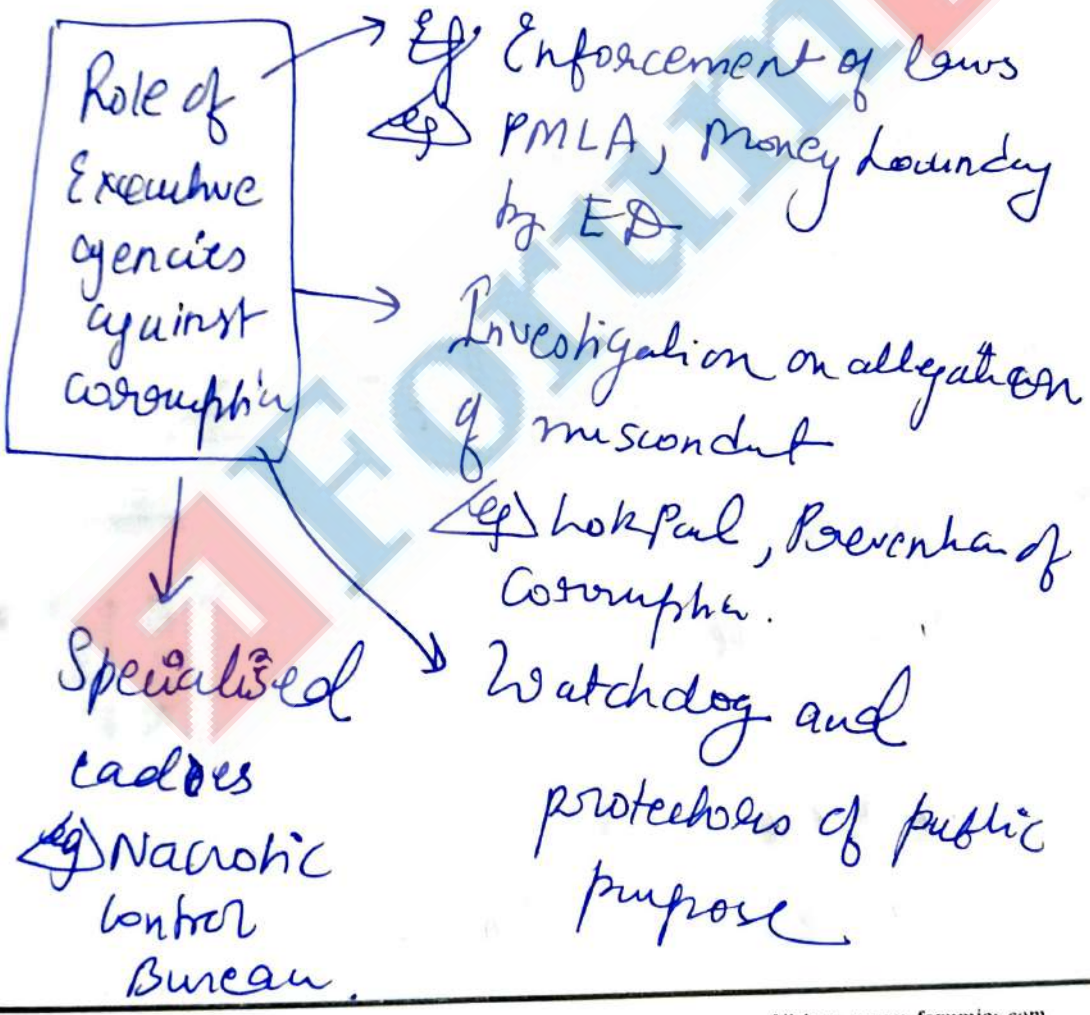 Role of
Executive
agencies
against
corruption
Enforcement of laws
eg PMLA, Money Laundry
by ED
Investigation on allegation
of misconduct
eg LokPal, Prevention of
Corruption.
Watchdog and
protectors of public
purpose
Specialised
cadres
eg Nacrotic
Control
Bureau.
Forum